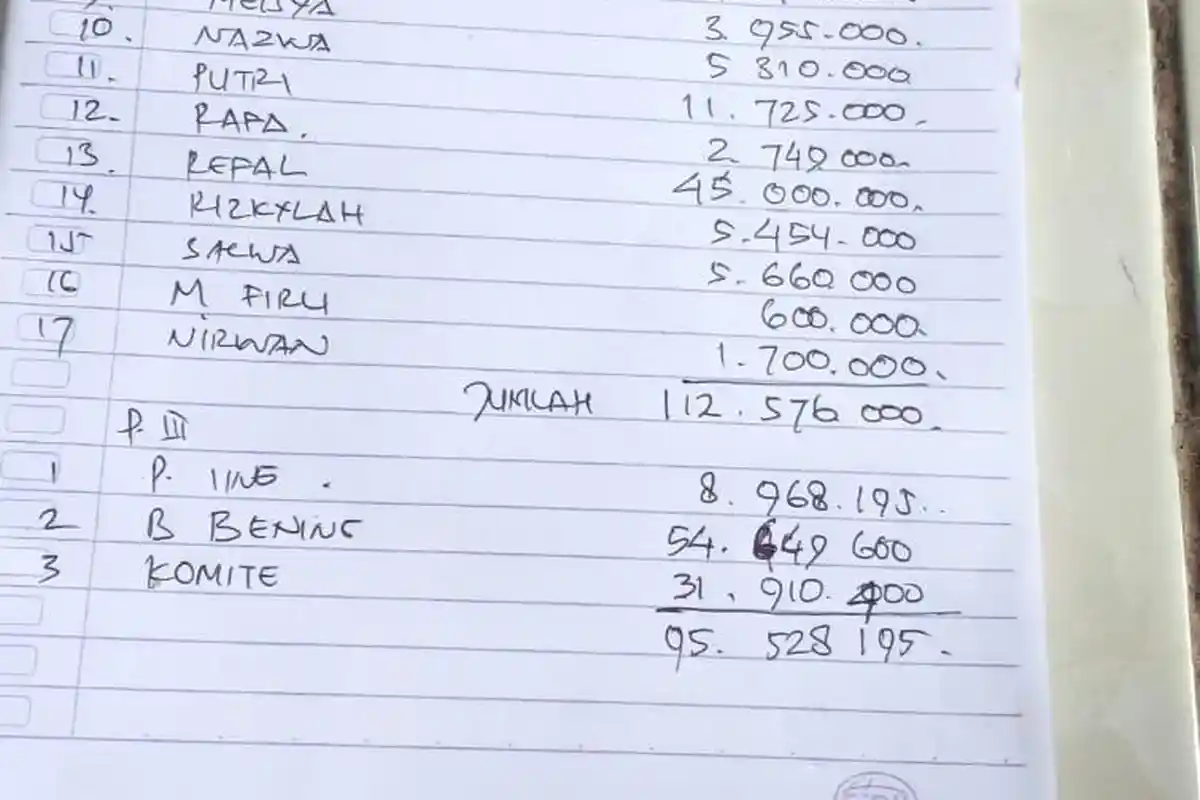 MEISYA 3 955.000.
10. NAZWA 5 310.000
11. PUTRI 11.725.000.
12. RAPA. 2 749 000.
13. REFAL 45.000.000.
14. RIZKYLAH 5.454.000
15 SALWA 5.660 000
16 M FIRLI 600.000.
17 NIRWAN 1.700.000.
JUMLAH 112.576 000.
P. III
1 P. IINE . 8.968.195..
2 B BENING 54.649 600
3 KOMITE 31.910.400
95. 528 195.